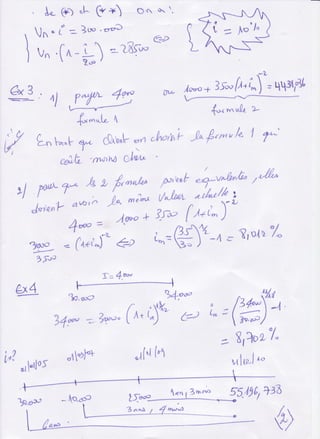 de (*) et (**) on a :
Vn . i = 300.000
Vn . (1 - i/200) = 28500 <=> i = 10%
Ex 3 : 1/ payer 4000 ou 1000 + 3500(1+im)^-2 = 4439,76
formule 1 formule 2
En tant que Client on choisit la formule 1 qui
coûte moins chère.
2/ pour que les 2 formules soient équivalentes, elles
doivent avoir la même valeur actuelle :
4000 = 1000 + 3500 (1+im)^-2
3000/3500 = (1+im)^-2 <=> im = (35/30)^1/2 - 1 = 8,012 %
Ex4
I = 4000
30.000 34.000
34000 = 30000 (1+im) <=> im = (34000/30000) - 1
= 8,702 %
i = ?
01/01/05 01/01/07 01/01/09 31/12/10
30.000 -10.000 25000 1an, 3mois 55,196,733
3ans, 9mois
6ans
2